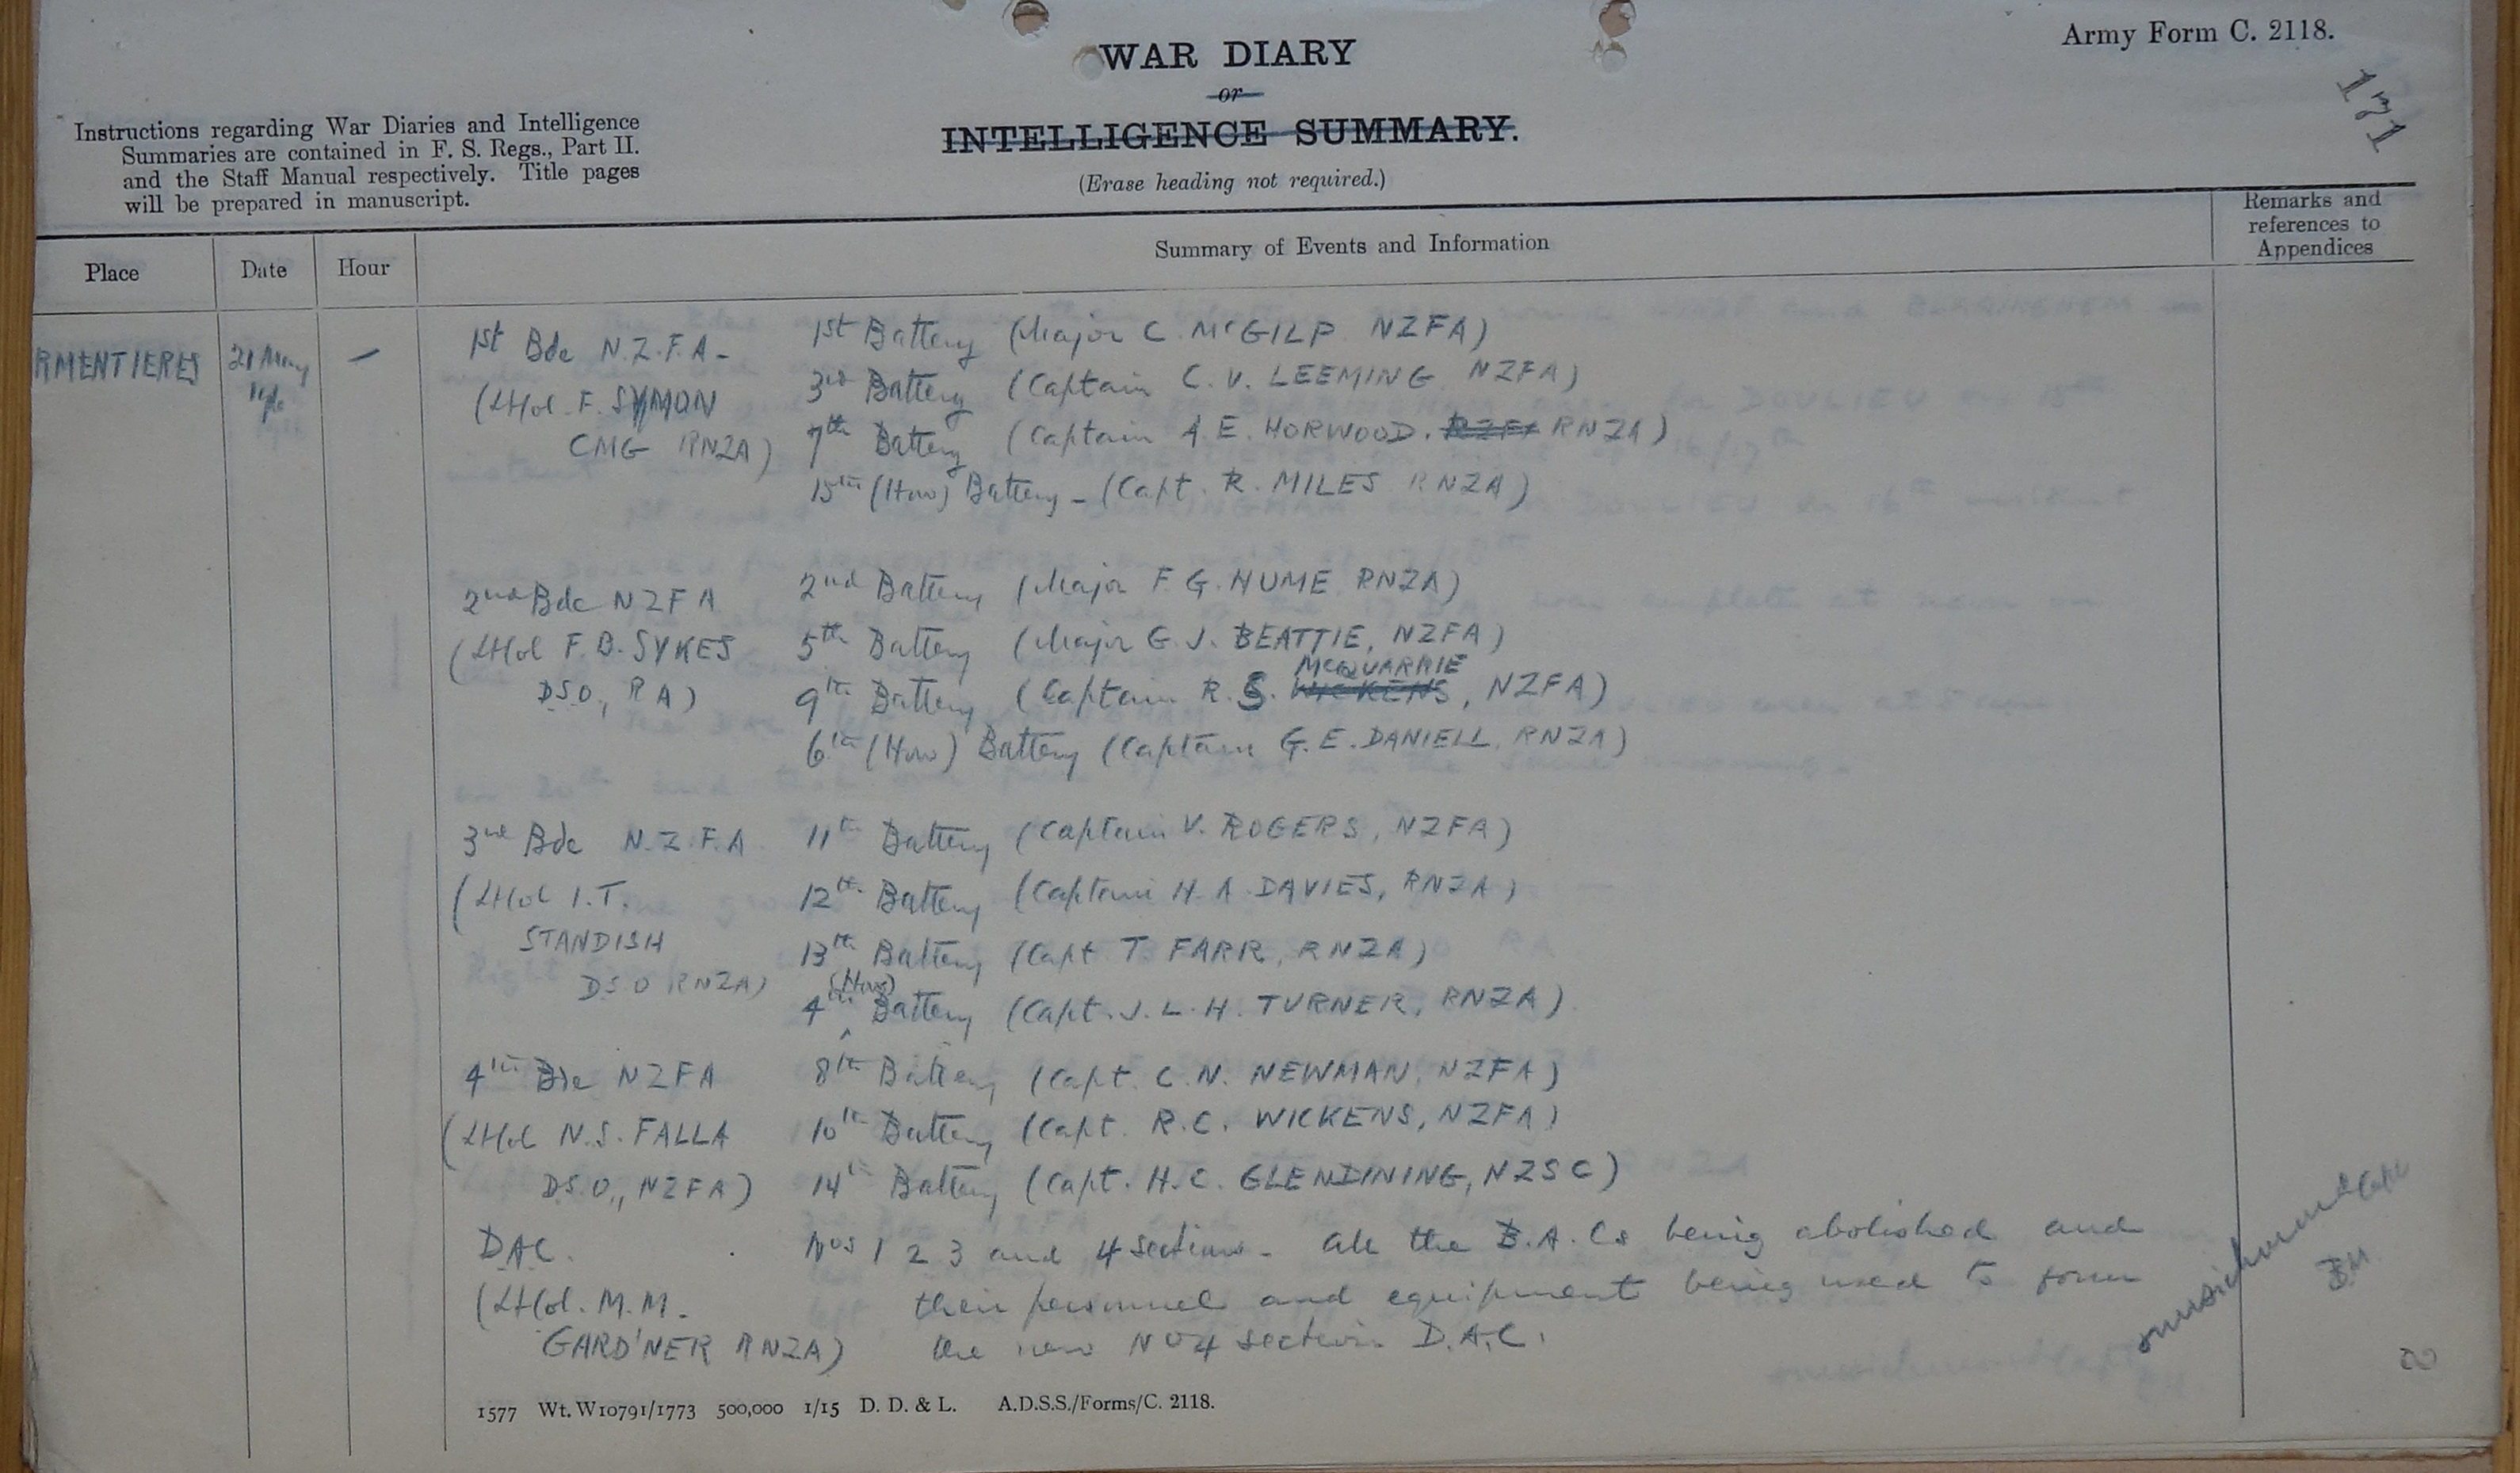 Army Form C. 2118.
171
WAR DIARY
or
INTELLIGENCE SUMMARY.
(Erase heading not required.)
Instructions regarding War Diaries and Intelligence
Summaries are contained in F. S. Regs., Part II.
and the Staff Manual respectively. Title pages
will be prepared in manuscript.
Place
Date
Hour
Summary of Events and Information
Remarks and
references to
Appendices
RMENTIERES 21 May —
1st Bde N.Z.F.A - 1st Battery (Major C. McGILP NZFA)
(LtCol F. SYMON 3rd Battery (Captain C. V. LEEMING NZFA)
CMG RNZA) 7th Battery (Captain A. E. HORWOOD. RNZA)
15th (How) Battery - (Capt. R. MILES RNZA)
2nd Bde NZFA 2nd Battery (Major F. G. HUME RNZA)
(LtCol F. B. SYKES 5th Battery (Major G. J. BEATTIE, NZFA)
McQUARRIE
DSO, RA) 9th Battery (Captain R. S. WICKENS, NZFA)
6th (How) Battery (Captain G. E. DANIELL, RNZA)
3rd Bde N.Z.F.A 11th Battery (Captain V. ROGERS, NZFA)
(LtCol I.T. 12th Battery (Captain H. A DAVIES, RNZA)
STANDISH 13th Battery (Capt T. FARR, RNZA)
(How)
DSO RNZA) 4th Battery (Capt. J. L. H. TURNER, RNZA)
4th Bde NZFA 8th Battery (Capt. C. N. NEWMAN, NZFA)
(LtCol N.S. FALLA 10th Battery (Capt. R.C. WICKENS, NZFA)
DSO, NZFA) 14th Battery (Capt. H.C. GLENDINING, NZSC)
DAC. Nos 1 2 3 and 4 sections - all the B.A.Cs being abolished and
(LtCol. M. M. their personnel and equipment being used to form
GARD'NER RNZA) the new No 4 section D.A.C.
Capt
BM
1577 Wt. W10791/1773 500,000 1/15 D. D. & L. A.D.S.S./Forms/C. 2118.